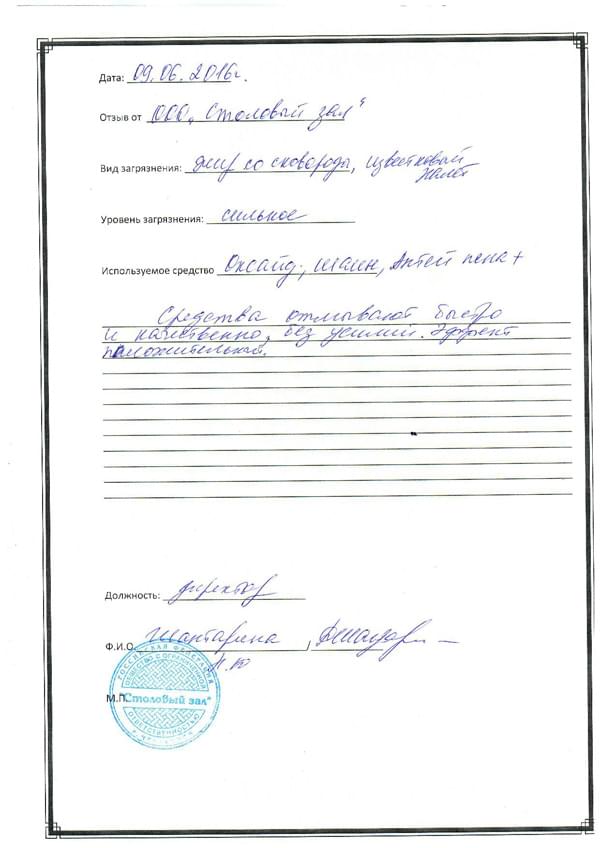 Дата: 09.06.2016г.
Отзыв от ООО „Столовый зал"
Вид загрязнения: жир со сковороды, известковый
налет
Уровень загрязнения: сильное
Используемое средство Оксайд, шайн, Антей пена +
Средства отмывают быстро
и качественно, без усилий. Эффект
положительный.
Должность: директор
Ф.И.О. Шантарина ,
Н.Ю
М.П.
РОССИЙСКАЯ ФЕДЕРАЦИЯ
ОБЩЕСТВО С ОГРАНИЧЕННОЙ
"Столовый зал"
ОТВЕТСТВЕННОСТЬЮ